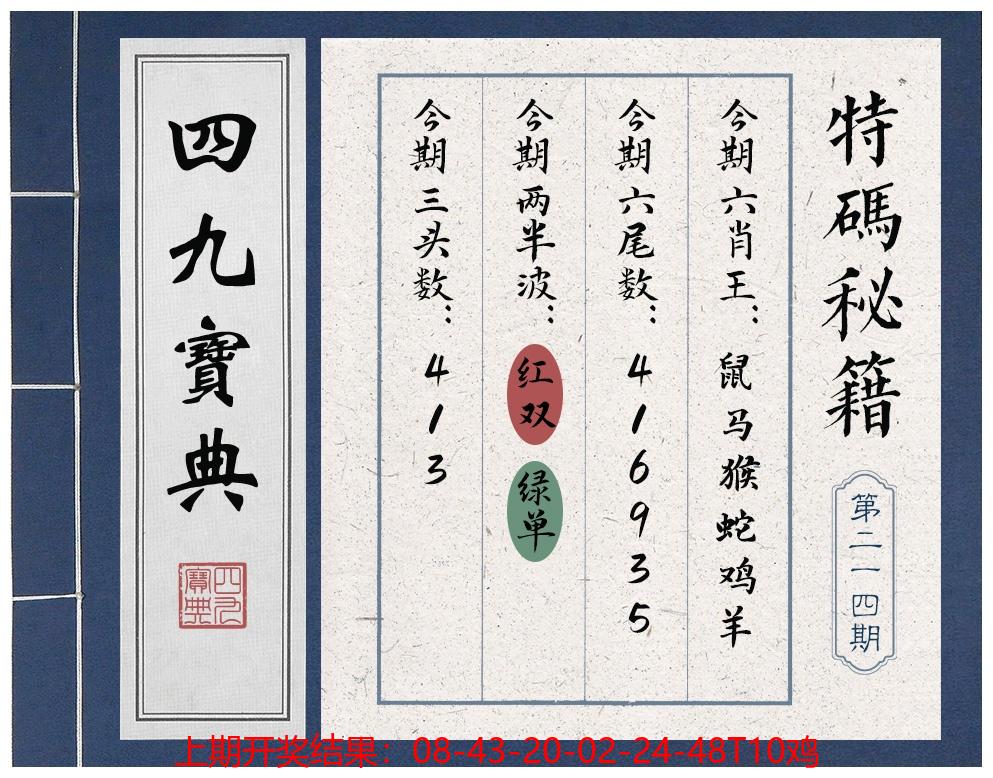 特碼秘籍
第二一四期
今期六肖王：鼠马猴蛇鸡羊
今期六尾数：416935
今期两半波：红双 绿单
今期三头数：413
四九寶典
四九寶典
上期开奖结果：08-43-20-02-24-48T10鸡